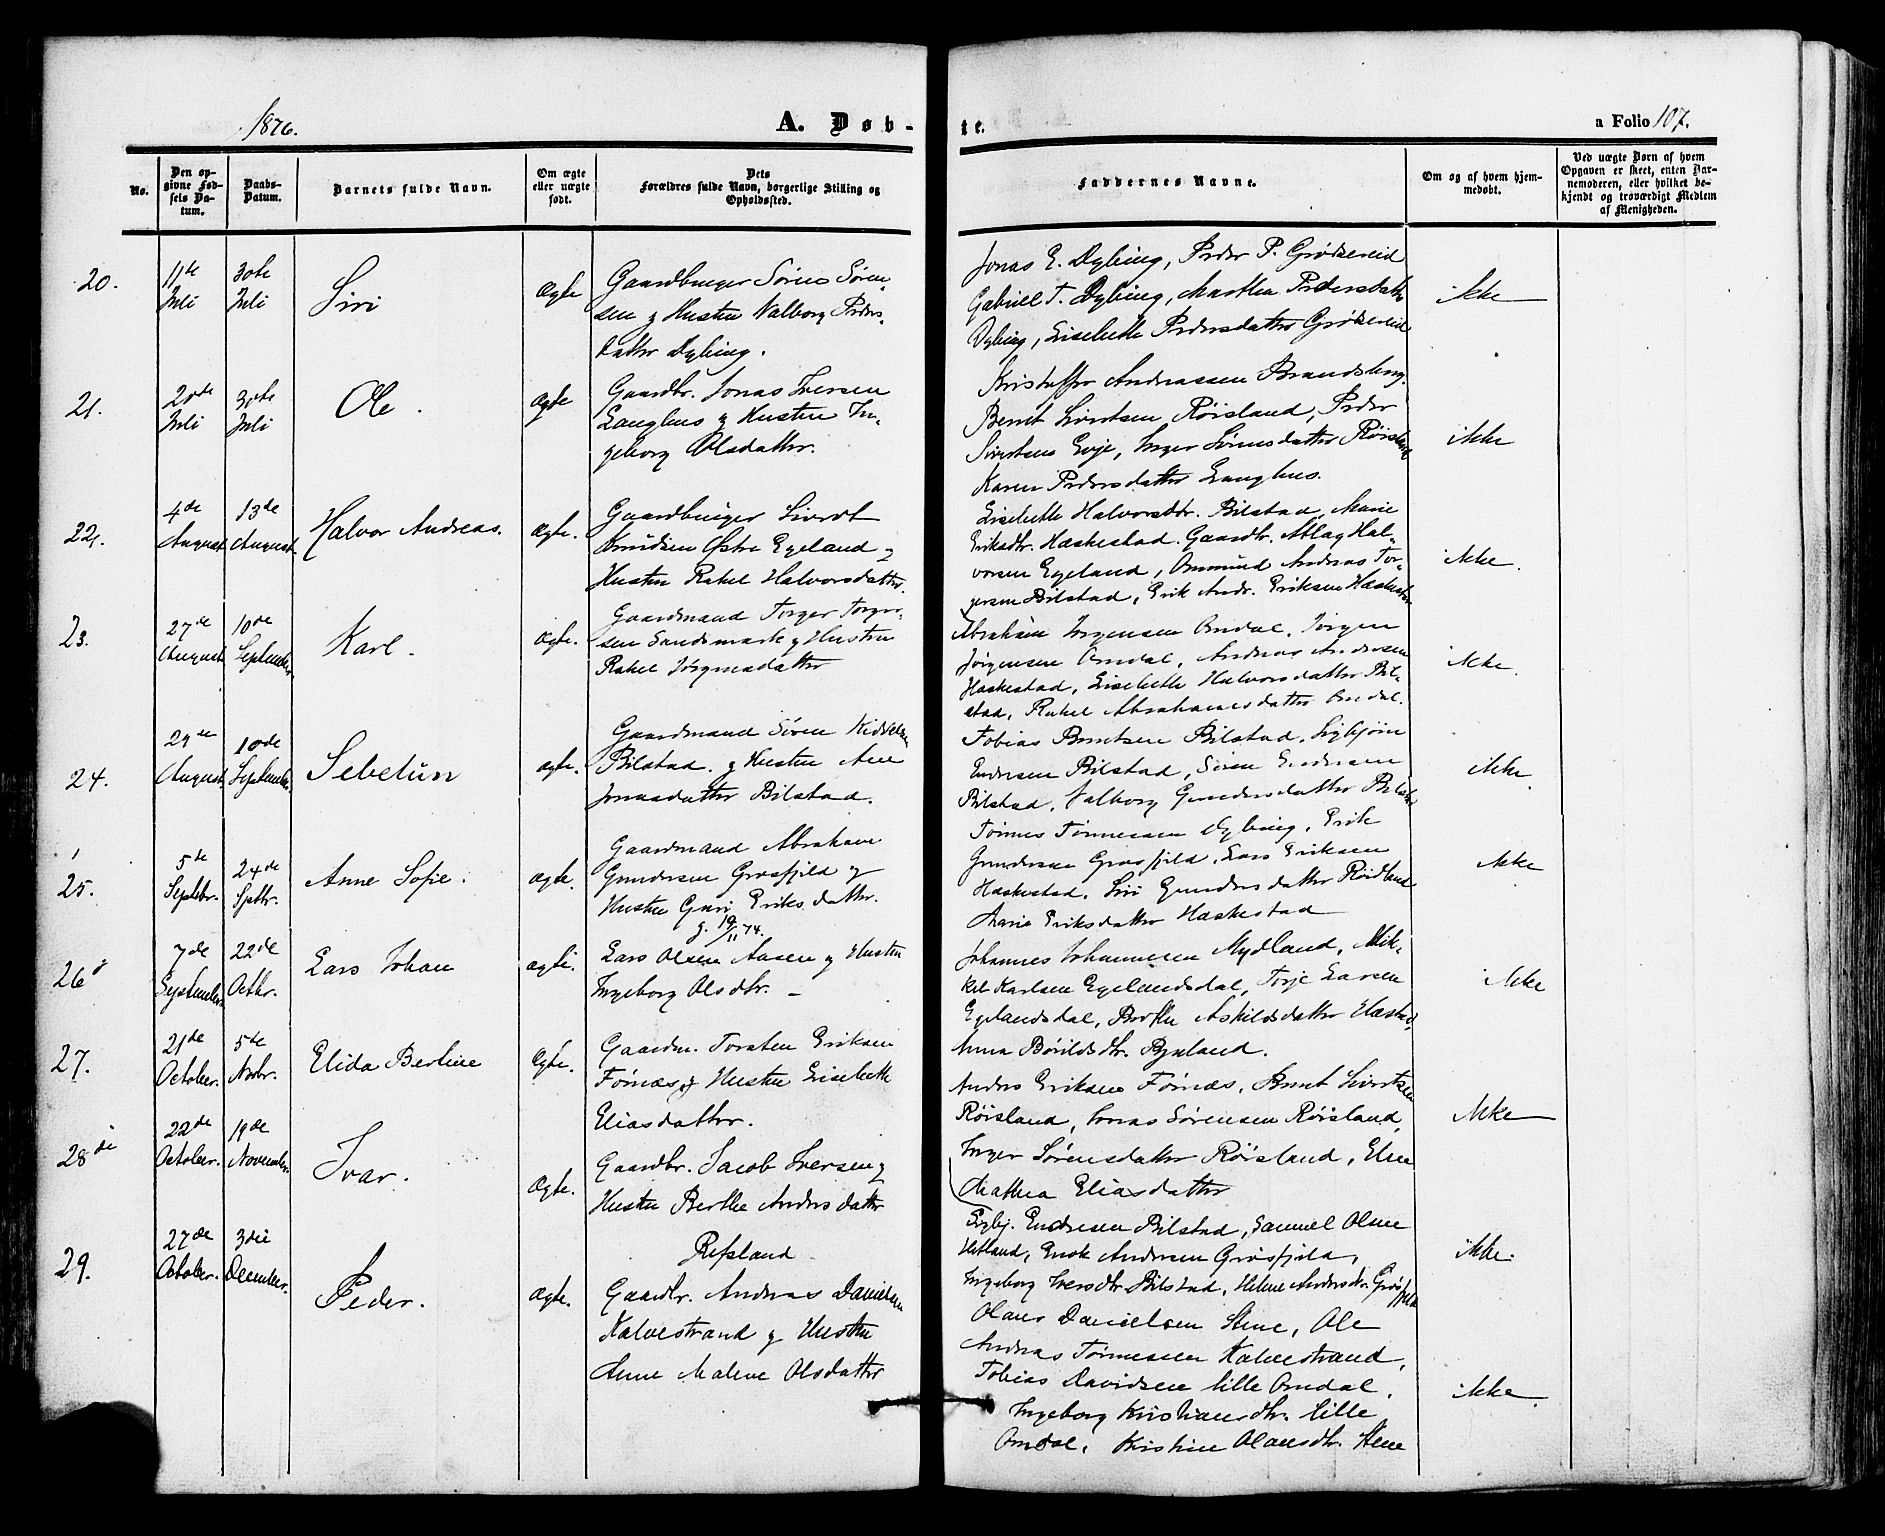 1876.
A. Døb-
te.
a Folio 107.
No.
Den opgivne Fødsels Datum.
Daabs-Datum.
Barnets fulde Navn.
Om ægte eller uægte født.
Dets Forældres fulde Navn, borgerlige Stilling og Opholdssted.
Faddernes Navne.
Om og af hvem hjemmedøbt.
Ved uægte Børn af hvem Opgaven er skeet, enten Barnemoderen, eller hvilket bekjendt og troværdigt Medlem af Menigheden.
20.
11te Juli
30te Juli
Siri
Ægte
Gaardbruger Søren Søren-
sen & Hustru Valborg Peders-
datter Dybing.
Jonas E. Dybing, Peder P. Grødsereid
Gabriel T. Dybing, Marthea Pedersdatter
Dybing, Lisebeth Pedersdatter Grødsereid
ikke
21.
20de Juli
30te Juli
Ole.
Ægte
Gaardbr. Jonas Iversen
Langhus & Hustru In-
geborg Olsdatter.
Kristoffer Andreassen Brandsberg.
Berent Sivertsen Røisland, Peder
Sivertsens Evje, Inger Sørensdatter Røisland
Karen Pedersdatter Langhus.
ikke
22.
4de August
13de August
Halvor Andreas.
Ægte.
Gaardbruger Sivert
Knudsen Østre Egeland &
Hustru Rakel Halvorsdatter
Lisebeth Halvorsdtr. Bilstad, Marie
Eriksdtr. Haskestad. Gaardbr. Atlag Hal-
vorsen Egeland, Ommund Andreas Tor-
gersen Bilstad, Erik Andr. Eriksen Haskestad
ikke.
23.
27de August
10de September
Karl.
Ægte.
Gaardmand Torger Torger-
sen Sandsmark & Hustru
Rakel Jørgensdatter
Abraham Jørgensen Omdal, Jørgen
Jørgensen Omdal, Andreas Andersen
Haskestad, Lisebeth Halvorsdatter Bil-
stad, Rakel Abrahamsdatter Omdal.
ikke.
24.
29de August
10de September
Sebelun
Ægte.
Gaardmand Søren
Bilstad. & Hustru Ane
Jonasdatter Bilstad.
Tobias Berntsen Bilstad, Sigbjørn
Endresen Bilstad, Søren Endresen
Bilstad, Valborg Gundersdatter Bilstad
ikke.
25.
5te Septebr.
24de Septbr.
Anne Sofie.
Ægte.
Gaardmand Abraham
Gundersen Grøsfjeld &
Hustru Guri Eriksdatter.
g. 19/11 74.
Tønnes Tønnessen Dybing, Erik
Gundersen Grøsfjeld, Lars Eriksen
Haskestad, Siri Gundersdatter Røidland
Marie Eriksdatter Haskestad
ikke
26
7de September
22de Octbr.
Lars Johan
ægte.
Lars Olsen Aasen & Hustru
Ingeborg Olsdtr. –
Johannes Johannesen Mydland, Mik-
kel Karlsen Egelandsdal, Torje Larsen
Egelandsdal, Berthe Askildsdatter Hæstad,
Anna Børildsdtr. Byeland.
ikke
27.
21de October.
5te Novbr.
Elida Berline
Ægte.
Gaardm. Torsten Eriksen
Førnæs & Hustru Lisebeth
Eliasdatter.
Anders Eriksen Førnæs, Bernt Sivertsen
Røisland, Jonas Sørensen Røisland,
Inger Sørensdatter Røisland, Elen
Mathea Eliasdatter
ikke
28de
22de October.
19de November.
Ivar.
Ægte.
Gaardbr. Jacob Iversen &
Hustru Berthe Andersdatter
Refsland
Sigbj. Endresen Bilstad, Samuel Olsen
Hetland, Enok Andersen Grøsfjeld,
Ingeborg Iversdtr. Bilstad, Helene Andersdtr. Grøsfjeld
ikke.
29.
27de October.
3die December.
Peder.
Ægte.
Gaardbr. Andreas Danielsen
Kalvestrand & Hustru
Anne Malene Olsdatter
Olaus Danielsen Stene, Ole
Andreas Tønnessen Kalvestrand,
Tobias Davidsen lille Omdal,
Ingeborg Kristiansdtr. lille
Omdal, Kristine Olausdtr. Stene
ikke.